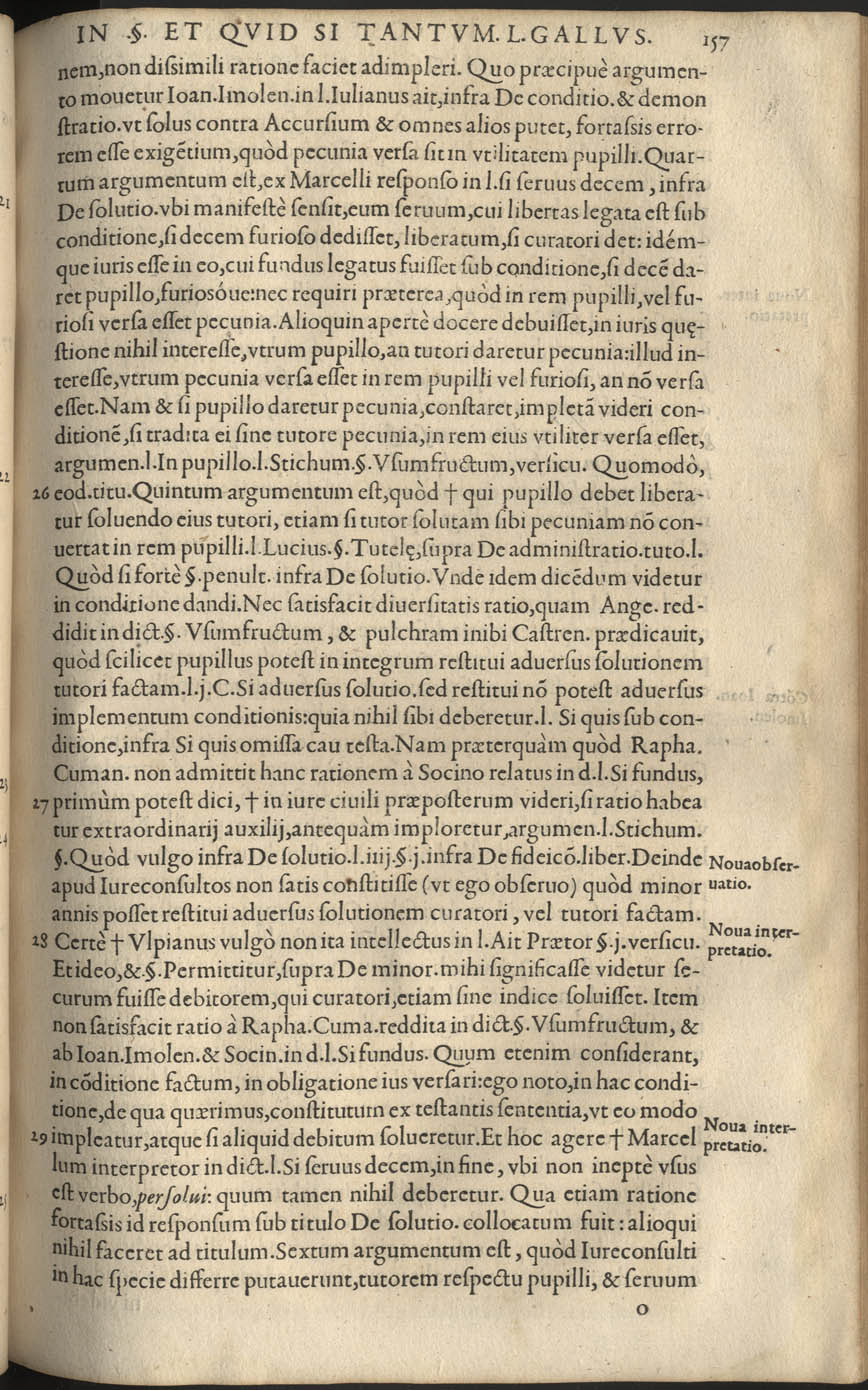 IN .§. ET QVID SI TANTVM. L. GALLVS. 157
nem,non dissimili ratione faciet adimpleri. Quo præcipuè argumen-
to mouetur Ioan.Imolen.in l.Iulianus ait,infra De conditio.& demon
stratio.vt solus contra Accursium & omnes alios putet, fortassis erro-
rem esse exigẽtium,quòd pecunia versa sit in vtilitatem pupilli.Quar-
tum argumentum est,ex Marcelli responso in l.si seruus decem, infra
De solutio.vbi manifestè sensit,eum seruum,cui libertas legata est sub
conditione,si decem furioso dedisset, liberatum,si curatori det: idém-
que iuris esse in eo,cui fundus legatus fuisset sub conditione,si decẽ da-
ret pupillo,furiosóue:nec requiri præterea,quòd in rem pupilli,vel fu-
riosi versa esset pecunia.Alioquin apertè docere debuisset,in iuris quę-
stione nihil interesse,vtrum pupillo,an tutori daretur pecunia:illud in-
teresse,vtrum pecunia versa esset in rem pupilli vel furiosi, an nõ versa
esset.Nam & si pupillo daretur pecunia,constaret,impletã videri con-
ditionẽ,si tradita ei sine tutore pecunia,in rem eius vtiliter versa esset,
argumen.l.In pupillo.l.Stichum.§.Vsumfructum,versicu. Quomodò,
26 eod.titu.Quintum argumentum est,quòd † qui pupillo debet libera-
tur soluendo eius tutori, etiam si tutor solutam sibi pecuniam nõ con-
uertat in rem pupilli.l.Lucius.§.Tutelę,supra De administratio.tuto.l.
Quòd si fortè §.penult. infra De solutio.Vnde idem dicẽdum videtur
in conditione dandi.Nec satisfacit diuersitatis ratio,quam Ange. red-
didit in dict.§. Vsumfructum, & pulchram inibi Castren. prædicauit,
quòd scilicet pupillus potest in integrum restitui aduersus solutionem
tutori factam.l.j.C.Si aduersus solutio.sed restitui nõ potest aduersus
implementum conditionis:quia nihil sibi deberetur.l. Si quis sub con-
ditione,infra Si quis omissa cau testa.Nam præterquàm quòd Rapha.
Cuman. non admittit hanc rationem à Socino relatus in d.l.Si fundus,
27 primùm potest dici, † in iure ciuili præposterum videri,si ratio habea
tur extraordinarij auxilij,antequàm imploretur,argumen.l.Stichum.
§.Quòd vulgo infra De solutio.l.iiij.§.j.infra De fideicõ.liber.Deinde Noua obser-
apud Iureconsultos non satis constitisse (vt ego obseruo) quòd minor uatio.
annis posset restitui aduersus solutionem curatori, vel tutori factam.
28 Certè † Vlpianus vulgò non ita intellectus in l.Ait Prætor §.j.versicu. Noua inter-
Et ideo,&.§.Permittitur,supra De minor.mihi significasse videtur se- pretatio.
curum fuisse debitorem,qui curatori,etiam sine indice soluisset. Item
non satisfacit ratio à Rapha.Cuma.reddita in dict.§.Vsumfructum, &
ab Ioan.Imolen.& Socin.in d.l.Si fundus. Quum etenim considerant,
in cõditione factum, in obligatione ius versari:ego noto,in hac condi-
tione,de qua quærimus,constitutum ex testantis sententia,vt eo modo
29 impleatur,atque si aliquid debitum solueretur.Et hoc agere † Marcel Noua inter-
lum interpretor in dict.l.Si seruus decem,in fine, vbi non ineptè vsus pretatio.
est verbo,persolui: quum tamen nihil deberetur. Qua etiam ratione
fortassis id responsum sub titulo De solutio. collocatum fuit: alioqui
nihil faceret ad titulum.Sextum argumentum est, quòd Iureconsulti
in hac specie differre putauerunt,tutorem respectu pupilli, & seruum
o